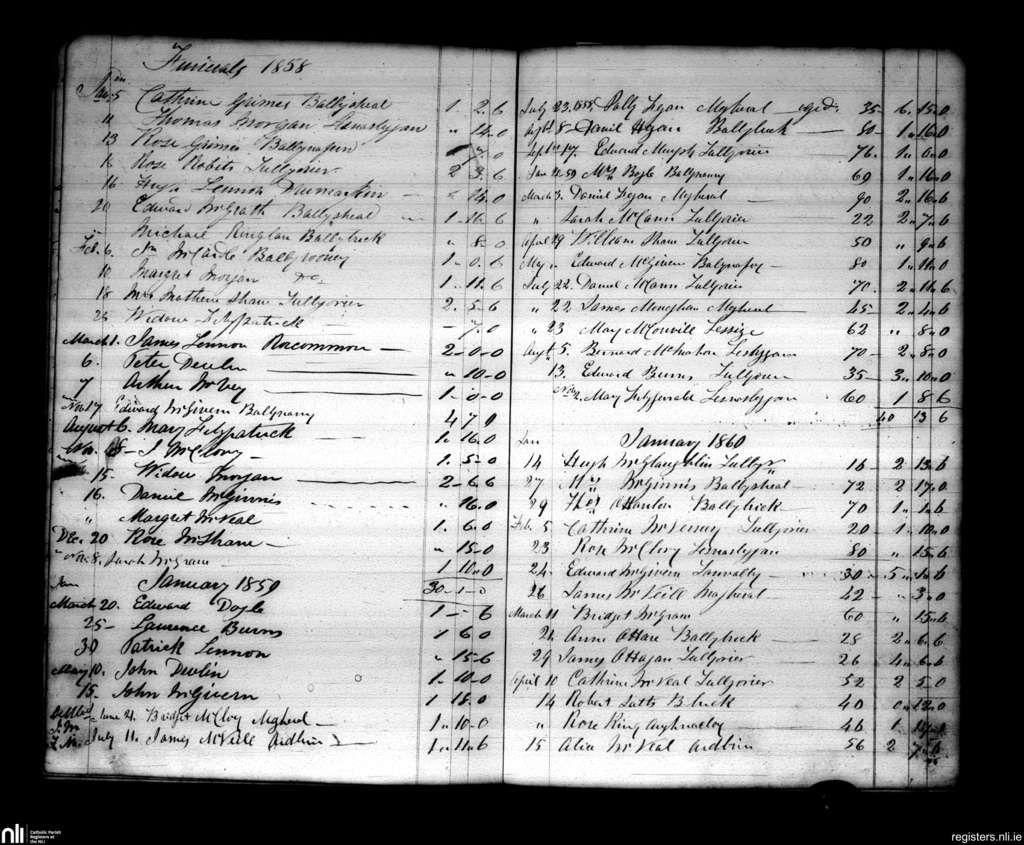 Funerals 1858
Jan 5 Cathrine Grimes Ballysheal 1. 2. 6
11 Thomas Morgan Lisnaslygan " 14. 0
13 Rose Grimes Ballynafern 7. 0
16 Rose Robits Tullyorier 2 3. 6
16 Hugh Lennon Drumarkin 14. 0
20 Edward McGrath Ballysheal 1. 16. 6
Michael Ringlan Ballybrick " 8. 0
Feb. 6. Jn McCardle Ballyrooney 1. 0. 6
10 Margret Morgan Do 1. 11. 6
18 Mrs Mathew Shaw Tullyorier 2. 5. 6
24 Widow Fitzpatrick — 7. 0
March 1. James Lennon Roscommon — 2-0-0
6. Peter Devlin " 10-0
7 Arthur McVey 1-0-0
Nov 17 Edward McGivern Ballynanny 4 7 9
August 6. Mary Fitzpatrick 1. 16. 0
Nov. 8- J McClory- 1. 5-0
15. Widow Morgan 2-6 6
16. Daniel McGinnis " 16. 0
" Margret McNeal 1. 6. 0
Dec. 20 Rose McShane — " 15-0
" Nov. 8. Sarah McGrann 1 10. 0
January 1859 30-1-0
March 20. Edward Doyle 1 - 6
25- Laurence Burns 1 6. 0
30 Patrick Lennon " 15-6
May 10. John Devlin 1. 10-0
15. John McGivern 1 18. 0
June 21. Bridget McCloy Mgheral — 1 " 10-0
July 11. James McNeill Ardbrin 1 " 11 " 6
July 23. 1855 Sally Fegan Mgheral aged. 35- 6. 15. 0
Augt 8- Daniel Hegan Ballybrick — 80- 1 " 16. 0
Sept 17. Edward Murphy Tullyorier 76. 1 " 0. 0
Jan 12. 59 Mrs Boyle Ballynanny 69 1 " 16. 0
March 3. Daniel Fegan Mgheral 90 2 " 16. 6
" Sarah McCann Tullyorier 22 2 " 7. 6
April 29 William Shaw Tullyorier 50 " 9. 6
My " Edward McGivern Balynafoy - 80 1 " 11. 0
July 22. Daniel McCann Tullyorier 70. 2 " 14. 6
" 22 James Monaghan Mgheral 45 2 " 4. 6
" 23 Mary McConvill Lessize 62 " 8. 0
Augt 5. Bernard McMahon Leslygan 70 - 2 " 8. 0
13. Edward Burns Tullyorier 35 - 3 " 10. 0
Nov 2. Mary Fitzgerald Lisnaslygan 60 1 8 6
40 13 6
Jan January 1860
14 Hugh McGlaughlin Tullyr 16 - 2 13. 6
27 My McGinnis Ballysheal — 72 2 17. 0
29 Thos OHanlon Ballybrick — 70 1 " 1. 6
Feb. 5 Cathrine McNerney Tullyorier 20 - 1 " 10. 0
23 Rose McClory Lisnaslygan 80 " 15. 6
24. Edward McGivern 30 - 5 " 10. 6
26 James McNeill Magheral — 42 - " 3. 0
March 11 Bridget McGrann 60 " 15. 6
24 Anne OHare Ballybrick — 25 2 " 6. 6
29 James OHagan Tullyorier — 26 4 " 6. 6
April 10 Cathrine McNeal Tullyorier 52 2 5. 0
14 Robert Latts B.brick 40 0 " 12. 0
" Rose King 46 1
15 Alice McNeal Ardbrin 56 2 7. 6
nli Catholic Parish Registers at the NLI
registers.nli.ie